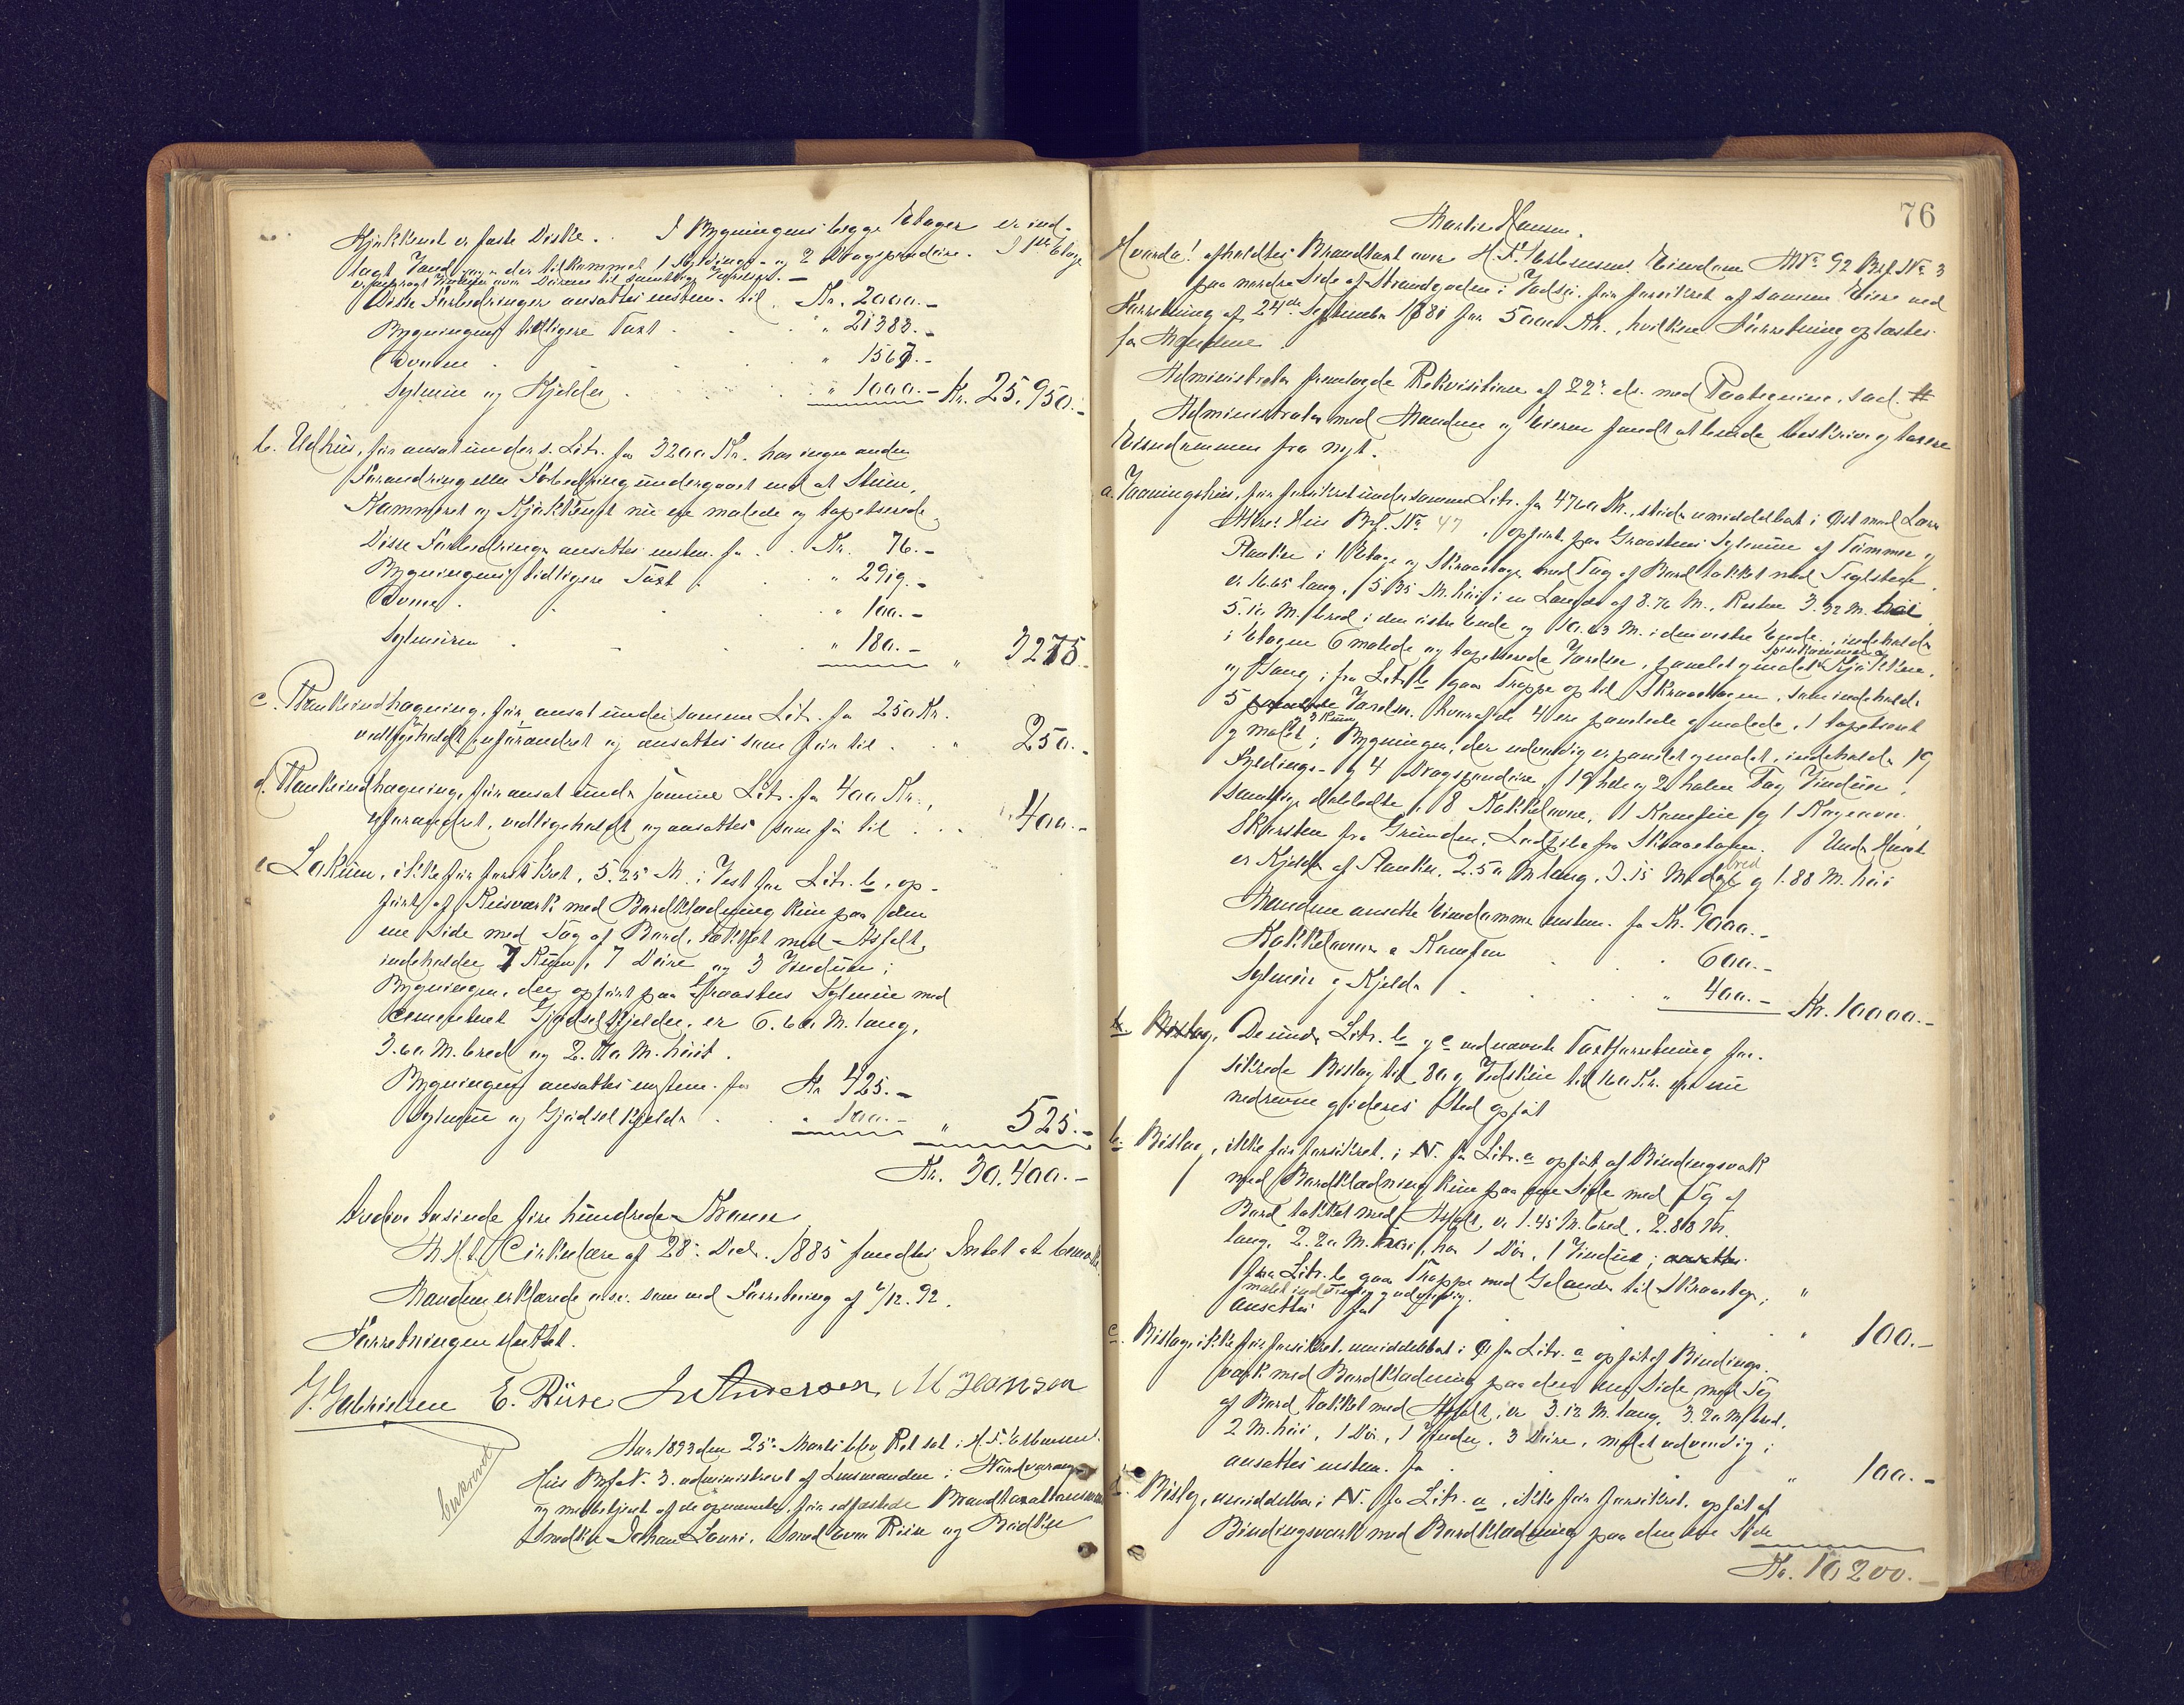 Kjøkkenet er faste Diske. I Bygningens begge Etager er ind-
lagt Vand, der tilkommet 1 Fyldings- og 2 Dragspeudøre. I 1ste Etage
er anbragt over Dørene til samtlige Værelser. –
Disse Forbedringer ansattes enstem. til Kr. 2000.–
Bygningens tidligere Taxt . " 21383.–
Ovnene . " 1567.–
Sylmúr og Kjelder . " 1000.– Kr. 25,950.–
b. Udhús, før ansat under s. Litr. for 3200 Kr. har ingen anden
Forandring eller Forbedring undergaaet end at Stúen,
Kammeret og Kjøkkenet nú ere malede og tapetserede.
Disse Forbedringer ansattes enstem. for . Kr. 76.–
Bygningens tidligere Taxt . " 2919.–
Ovne . " 100.–
Sylmúren . " 180.– " 3275.–
c. Plankeindhegning, før ansat under samme Litr. for 250 Kr.
vedligeholdt, uforandret og ansattes som før til . " 250.–
d. Plankeindhegning, før ansat under samme Litr. for 400 Kr.,
uforandret, vedligeholdt og ansattes som før til . . . " 400.–
e. Lokúm, ikke før forsikret, 5.25 M. i Vest for Litr. b, op-
ført af Reisværk med Bordklædning kún paa den
ene Side med Tag af Bord, tækket med Asfalt,
indeholder 7 Rúm, 7 Døre og 3 Vindúer;
Bygningen, der opført paa Graastens Sylmúr med
cementeret Gjødselkjelder, er 6.60 M. lang,
3.60 M. bred og 2. M. høit.
Bygningen ansattes enstem. for Kr 425.–
Sylmúr og Gjødselkjelder . . " 100.– " 525.–
Kr. 30,400.–
tredive túsinde fire húndrede Kroner
Th. H. t. Cirkulære af 28de Decbr. 1885 fandtes Intet at bemærke.
Mændene erklærede ensv. som ved Forretning af 6/12. 92.
Forretningen slúttet.
J. Gabrielsen E. Riise Andersen M Hansen
Beskreved
Aar 1893 den 25de Marts blev Ret sat i H. F. Esbensens
Hús Brf. N. 3. administreret af Lensmanden i Nordvaranger
og medbetjent af de opnævnte, før edfæstede Brandtaxationsmænd
Snedker Johan Lauri, Smed Even Riise og Bødker
76
Martin Hansen.
Hvorda! afholdtes Brandtaxt over H. F. Esbensens Eiendom MNo 92 Brf. No 3
paa nordre Side af Strandgaden i Vadsø. før forsikret af samme Eiere ved
Forretning af 24de September 1881 for 5000 Kr., hvilken Forretning oplæstes
for Mændene.
Administrator fremlagde Rekvisitionen af 22de ds. med Paategning, saal.
Administrator med Mændene og Eieren fandt at burde beskrive og taxere
Eiendommen fra nyt.
a. Vaaningshús, før forsikret under samme Litr. for 4760 Kr., støder umiddelbart i Øst med Lars
Hús Brf. No 47, opført paa Graastens Sylmúr af Tømmer og
Planker i 1 Etage og Skraaetage med Tag af Bord tækket med Teglsten
er 16.65 lang, 5.35 M. høi i en Længde af 8.76 M., Resten 3.32 M. høi
5.10 M. bred i den østre Ende og 10.63 M. i den vestre Ende, indeholder
i Etagen 6 malede og tapetserede Værelser, panelet og malet Spisekammer og Kjøkken,
og Gang; fra Litr. b gaar Trappe op til Skraaetagen, som indeholder
5 Værelser, hvoraf de 4 ere panelede og malede, 1 tapetseret
og malet, 3 Rúm; Bygningen, der udvendig er panelet og malet, indeholder 19
Fyldings- og 4 Dragspeudøre, 19 hele og 2 halve Fag Vindúer,
samtlige dobbelte, 8 Kakkelovne, 1 Kamfin og 1 Bagerovn.
Skorsten fra Grúnden, Ladpibe fra Skraaetagen. Under Húset
er Kjelder af Planker, 2.50 M. lang, 3.15 M. bred og 1.88 M. høi
Mændene ansatte Eiendommen enstem. for Kr. 9000.–
Kakkelovnene og Kamfin . . 600.–
Sylmúr og Kjelder . . " 400.– Kr. 10000.–
b. Bislag, De under Litr. b og c ved nævnte Taxtforretning for-
sikrede Bislag til 80 og Vedskúr til 160 Kr. ere nú
nedrevne og i deres Sted opført
b. Bislag, ikke før forsikret, i N. for Litr. a opført af Bindingsværk
med Bordklædning kún paa ene Side med Tag af
Bord tækket med Asfalt, er 1.45 M. bred, 2.88 M.
lang, 2.20 M. høi, har 1 Dør, 1 Vindúe;
fra Litr. b gaar Trappe med Gelænder til Skraaetagen;
malet indvendig og udvendig.
ansattes for . . " 100.–
c. Bislag, ikke før forsikret, umiddelbart i Ø for Litr. a opført af Bindings-
værk med Bordklædning paa den ene Side med Tag
af Bord tækket med Asfalt, er 3.12 M. lang, 3.20 M. bred,
2 M. høi, 1 Dør, 1 Vindu, 3 Døre, malet udvendig;
ansattes enstem. for . . " 100.–
d. Bislag, umiddelbar i N. for Litr. a, ikke før forsikret, opført af
Bindingsværk med Bordklædning paa den ene Side
Kr. 10200.–